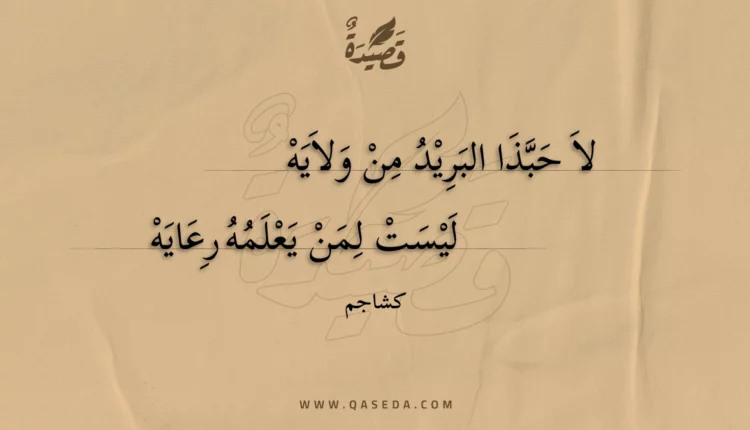 قَصِيْدَةٌ
لاَ حَبَّذَا البَرِيْدُ مِنْ وَلاَيَهْ
لَيْسَتْ لِمَنْ يَعْلَمُهُ رِعَايَهْ
كشاجم
WWW.QASEDA.COM